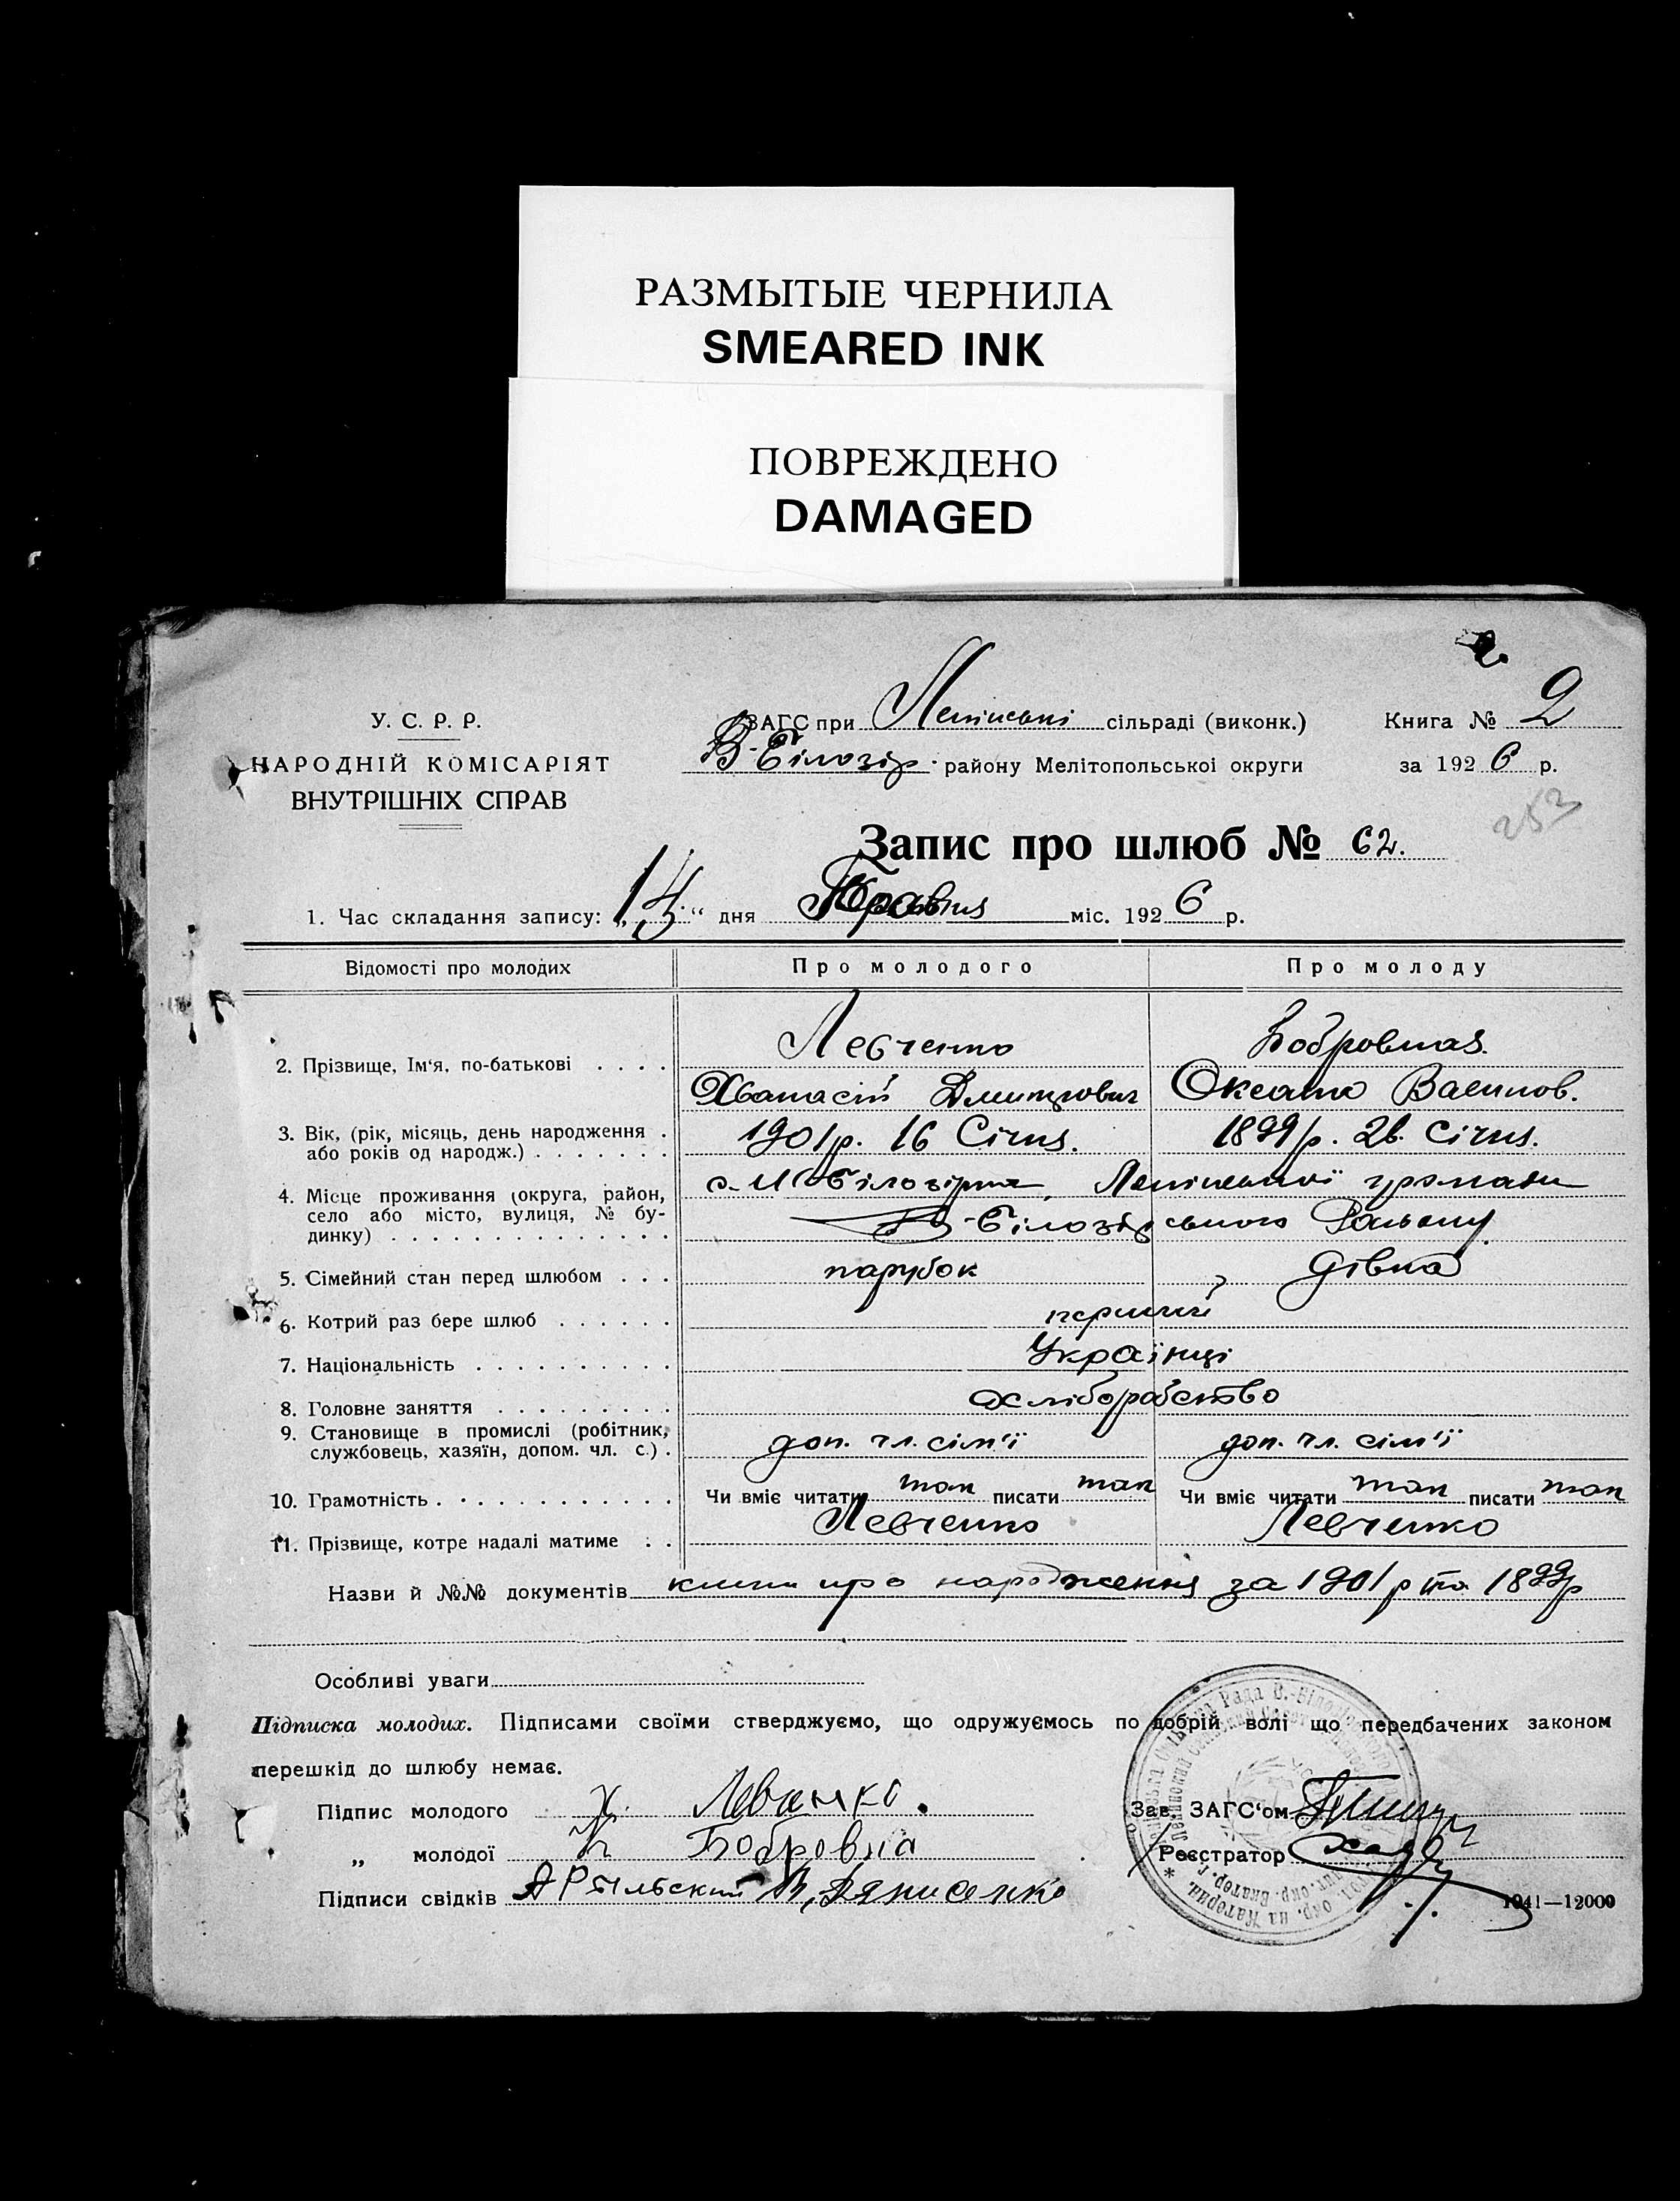 РАЗМЫТЫЕ ЧЕРНИЛА
SMEARED INK
ПОВРЕЖДЕНО
DAMAGED
У. С. Р. Р.
НАРОДНІЙ КОМІСАРІЯТ
ВНУТРІШНІХ СПРАВ
ЗАГС при Ленінські сільраді (виконк.)
В-Білозір. району Мелітопольської округи
Книга № 2
за 1926 р.
253
Запис про шлюб № 62.
1. Час складання запису: „ “ дня Травня міс. 1926 р.
Відомості про молодих Про молодого Про молоду
2. Прізвище, Ім‘я, по-батькові Левченко Бобровная.
Хванасій Дмитрович Оксана Василов.
3. Вік, (рік, місяць, день народження або років од народж.) 1901 р. 16 Січня. 1899 р. 26. Січня.
4. Місце проживання (округа, район, село або місто, вулиця, № будинку) с. М Білозірка, Ленінської громади
В-Білозірського Району
5. Сімейний стан перед шлюбом парубок, дівка
6. Котрий раз бере шлюб перший
7. Національність Українці
8. Головне заняття хліборобство
9. Становище в промислі (робітник, службовець, хазяїн, допом. чл. с.) доп. чл. сім'ї доп. чл. сім'ї
10. Грамотність Чи вміє читати так писати так Чи вміє читати так писати так
11. Прізвище, котре надалі матиме Левченко Левченко
Назви й №№ документів книги про народження за 1901 р та 1899 р
Особливі уваги
Підписка молодих. Підписами своїми стверджуємо, що одружуємось по добрій волі що передбачених законом
перешкід до шлюбу немає.
Підпис молодого Х. Левчнко.
„ молодої Бобровна
Підписи свідків Денисенко
Зав. ЗАГС‘ом
Реєстратор
1941—12000